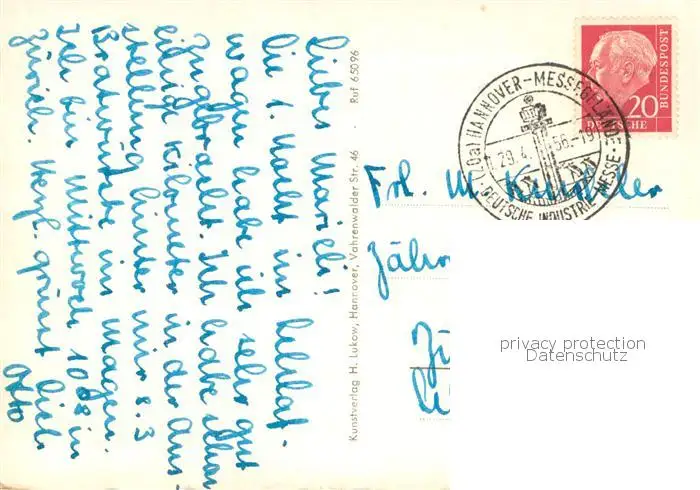 Liebes Marieli!
Die 1. Nacht im Schlaf-
wagen habe ich sehr gut
zugebracht. Ich habe schon
einige Kilometer in der Aus-
stellung hinter mir &
Bratwürste im Magen.
Ich bin Mittwoch 1008 in
Zürich. Herzl. grüsst Dich
Otto
Kunstverlag H. Lukow, Hannover, Vahrenwalder Str. 46 · Ruf 65096
Frl. M.
DEUTSCHE BUNDESPOST
20
HANNOVER-MESSEGELÄNDE
29.4.56.-19
DEUTSCHE INDUSTRIE-MESSE
privacy protection
Datenschutz